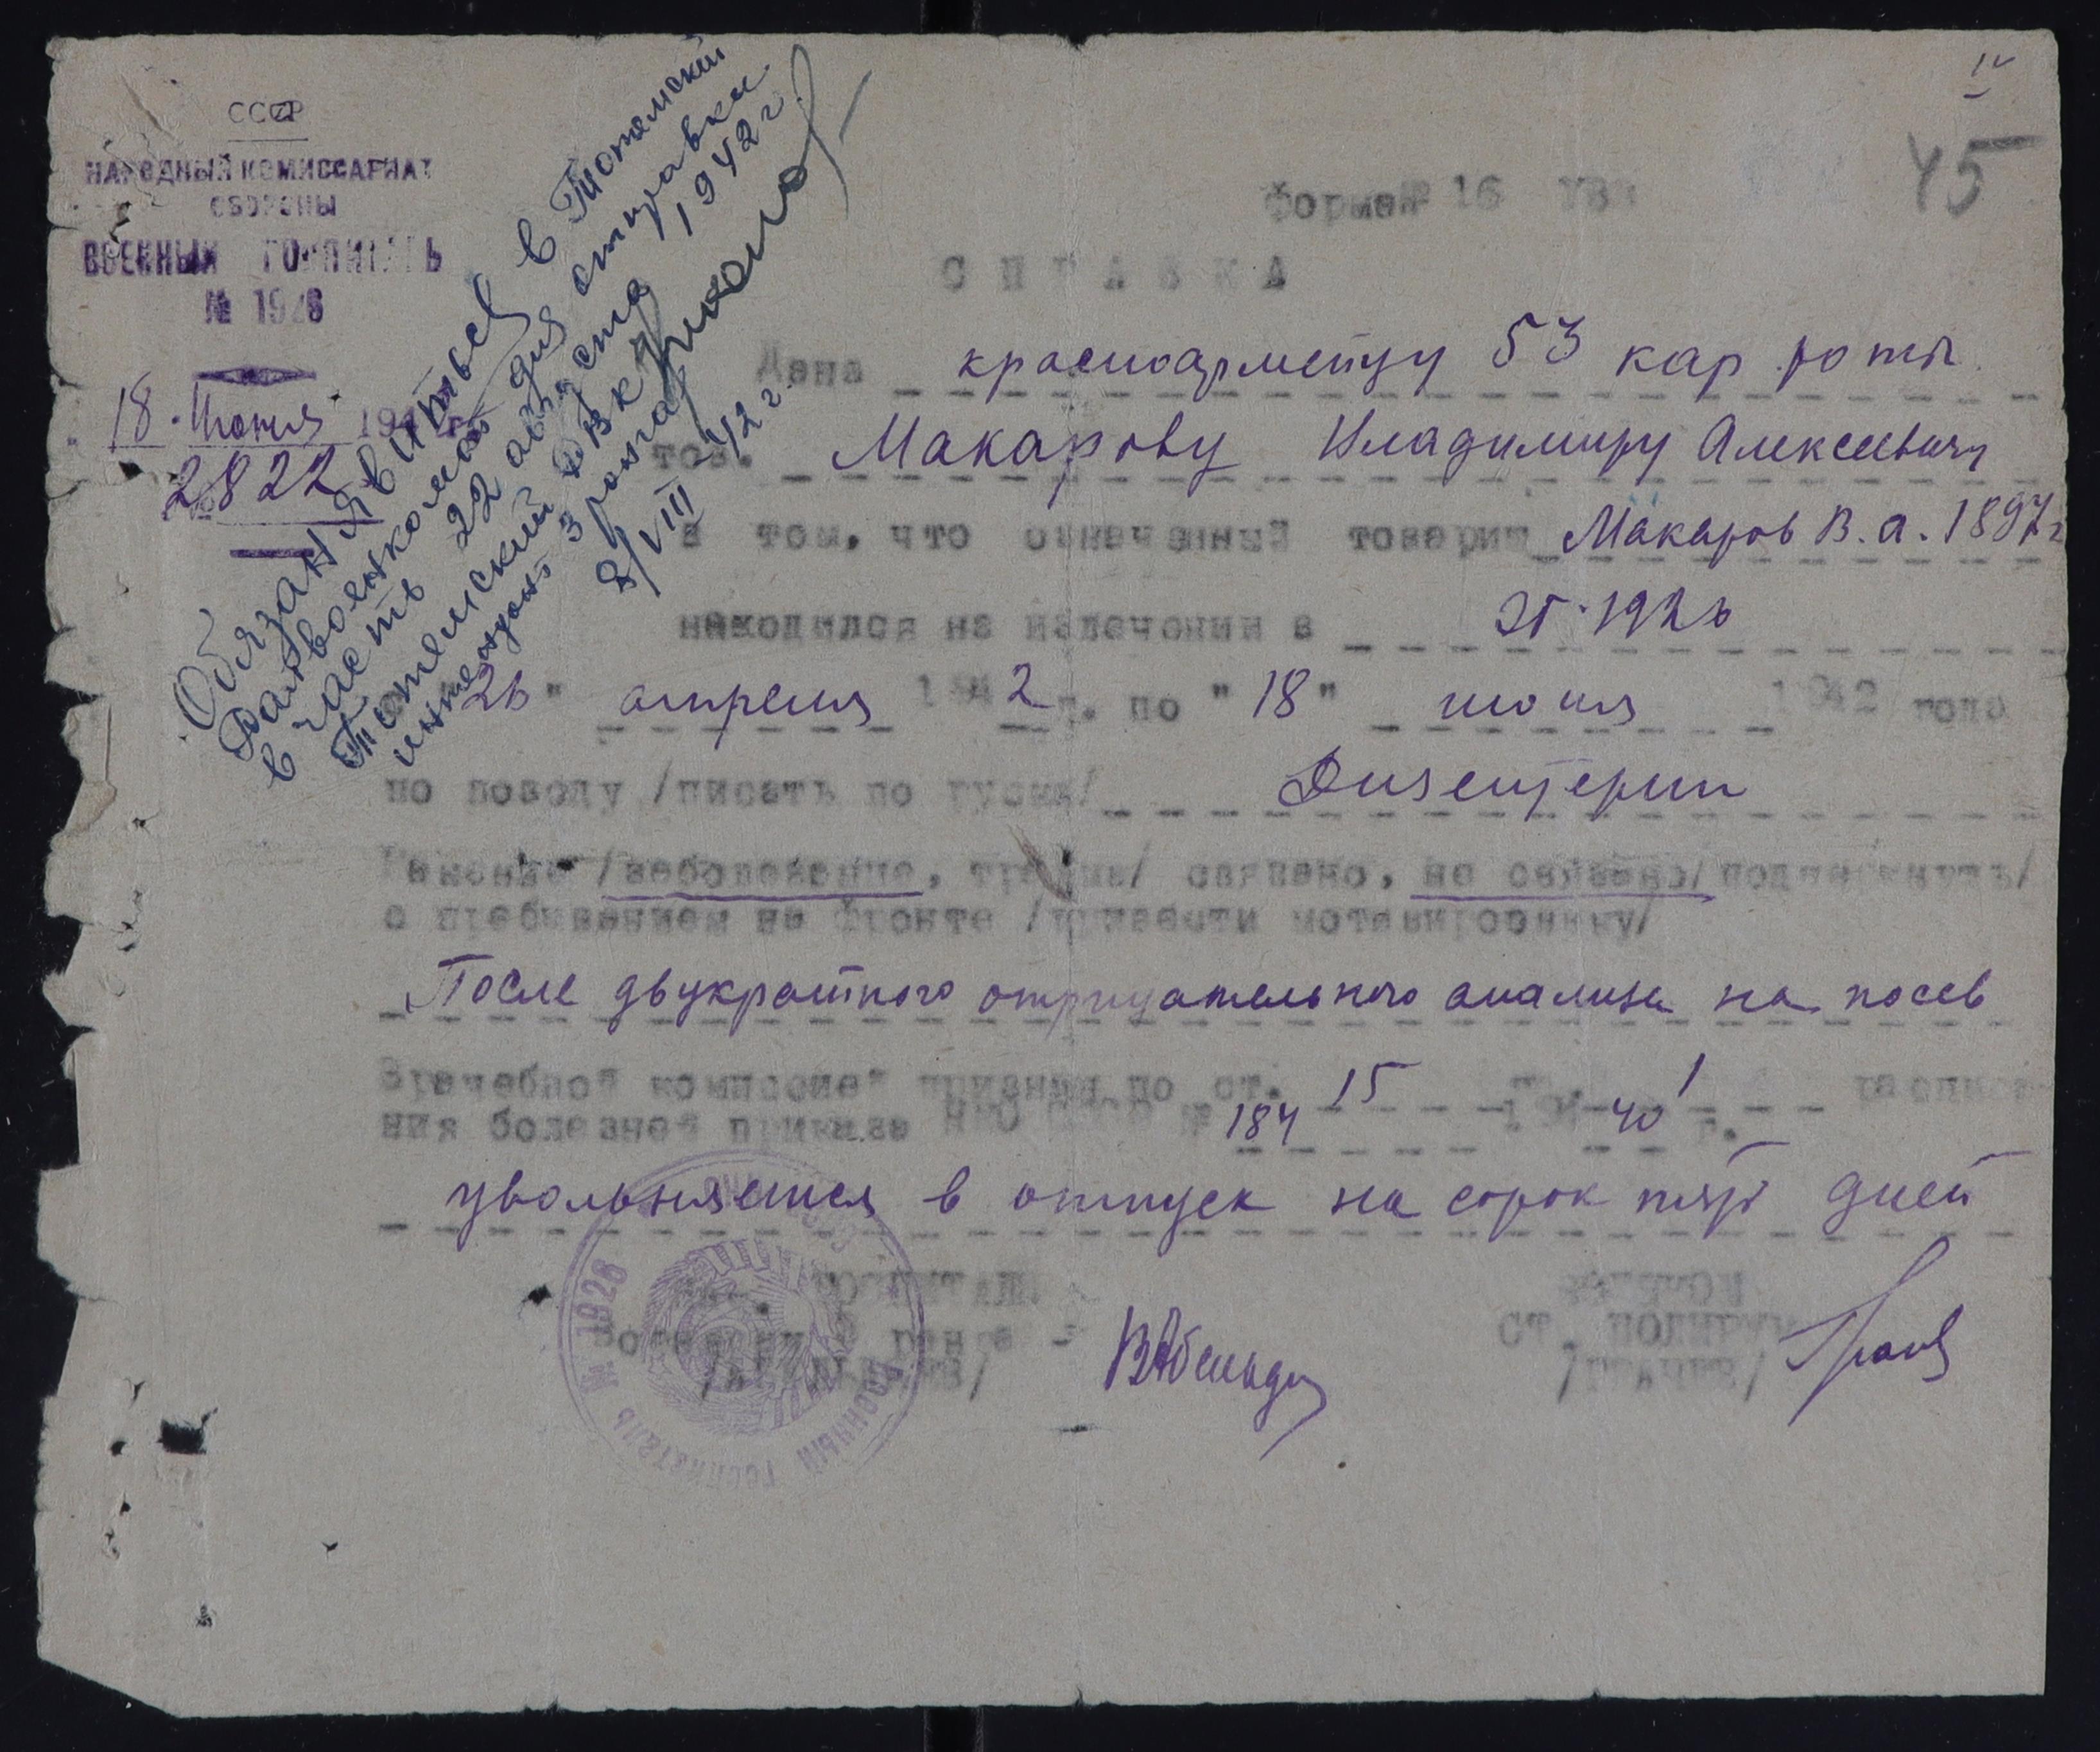 СССР
НАРОДНЫЙ КОМИССАРИАТ
ОБОРОНЫ
ВОЕННЫЙ ГОСПИТАЛЬ
№ 1926
18 · Июня 1942 г.
№ 2822
45
Форма № 16
СПРАВКА
Дана красноармейцу 53 кар роты
тов. Макарову Владимиру Алексеевичу
в том, что означенный товарищ Макаров В.А. 1897 г
находился на излечении в ЭГ 1926
26 " апреля 1942 г. по "18" июня 1942 года
по поводу /писать по русски/ Дизентерии
Ранение /заболевание, травма/ связано, не связано/ подчеркнуть/
с пребыванием на фронте /привести мотивировку/
После двукратного отрицательного анализа на посев
Врачебной комиссией признан по ст. 15 гр. 1 расписа-
ния болезней приказа НКО СССР № 184 1940 г.
увольняется в отпуск на сорок пять дней
госпиталя
Военврач ранга -
СТ. ПОЛИТРУК
/ГРАЧЕВ/
№ 1926 ВОЕННЫЙ ГОСПИТАЛЬ
Обязан явиться в Тотемский
Райвоенкомат для отправки
в часть 22 августа 1942 г.
Тотемский РВК
интендант 3 ранга
8/VIII 42 г.